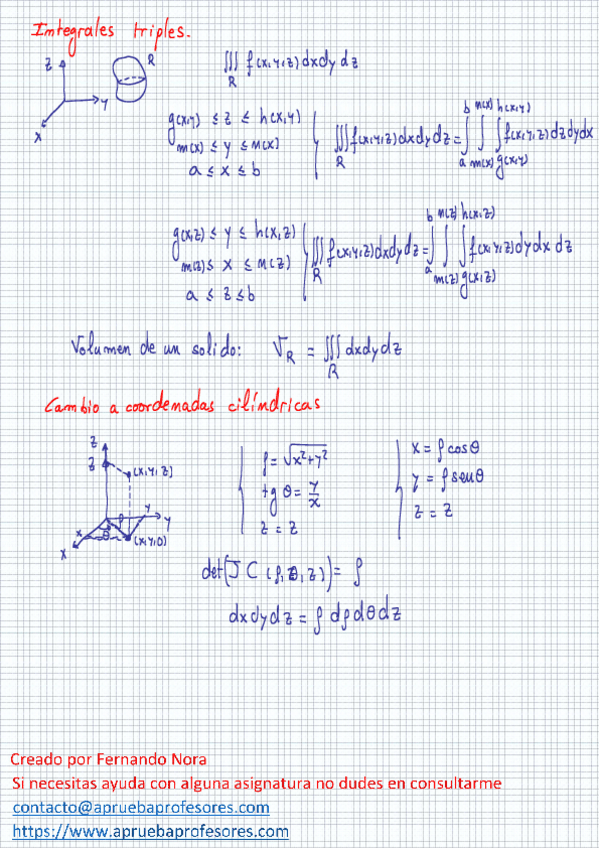 Integrales triples.
z R y x
∭_R f(x,y,z)dxdy dz
g(x,y) ≤ z ≤ h(x,y)
m(x) ≤ y ≤ M(x)
a ≤ x ≤ b
∭_R f(x,y,z)dxdydz = ∫_a^b ∫_{m(x)}^{M(x)} ∫_{g(x,y)}^{h(x,y)} f(x,y,z)dzdydx
g(x,z) ≤ y ≤ h(x,z)
m(z) ≤ x ≤ M(z)
a ≤ z ≤ b
∭_R f(x,y,z)dxdydz = ∫_a^b ∫_{m(z)}^{M(z)} ∫_{g(x,z)}^{h(x,z)} f(x,y,z)dydx dz
Volumen de un solido: V_R = ∭_R dxdydz
Cambio a coordenadas cilíndricas
z
z (x,y,z)
x θ ρ y y
x (x,y,0)
ρ = √x²+y²
tg θ = y/x
z = z
x = ρ cosθ
y = ρ senθ
z = z
det(J C (ρ,θ,z)) = ρ
dxdydz = ρ dρdθdz
Creado por Fernando Nora
Si necesitas ayuda con alguna asignatura no dudes en consultarme
contacto@apruebaprofesores.com
https://www.apruebaprofesores.com